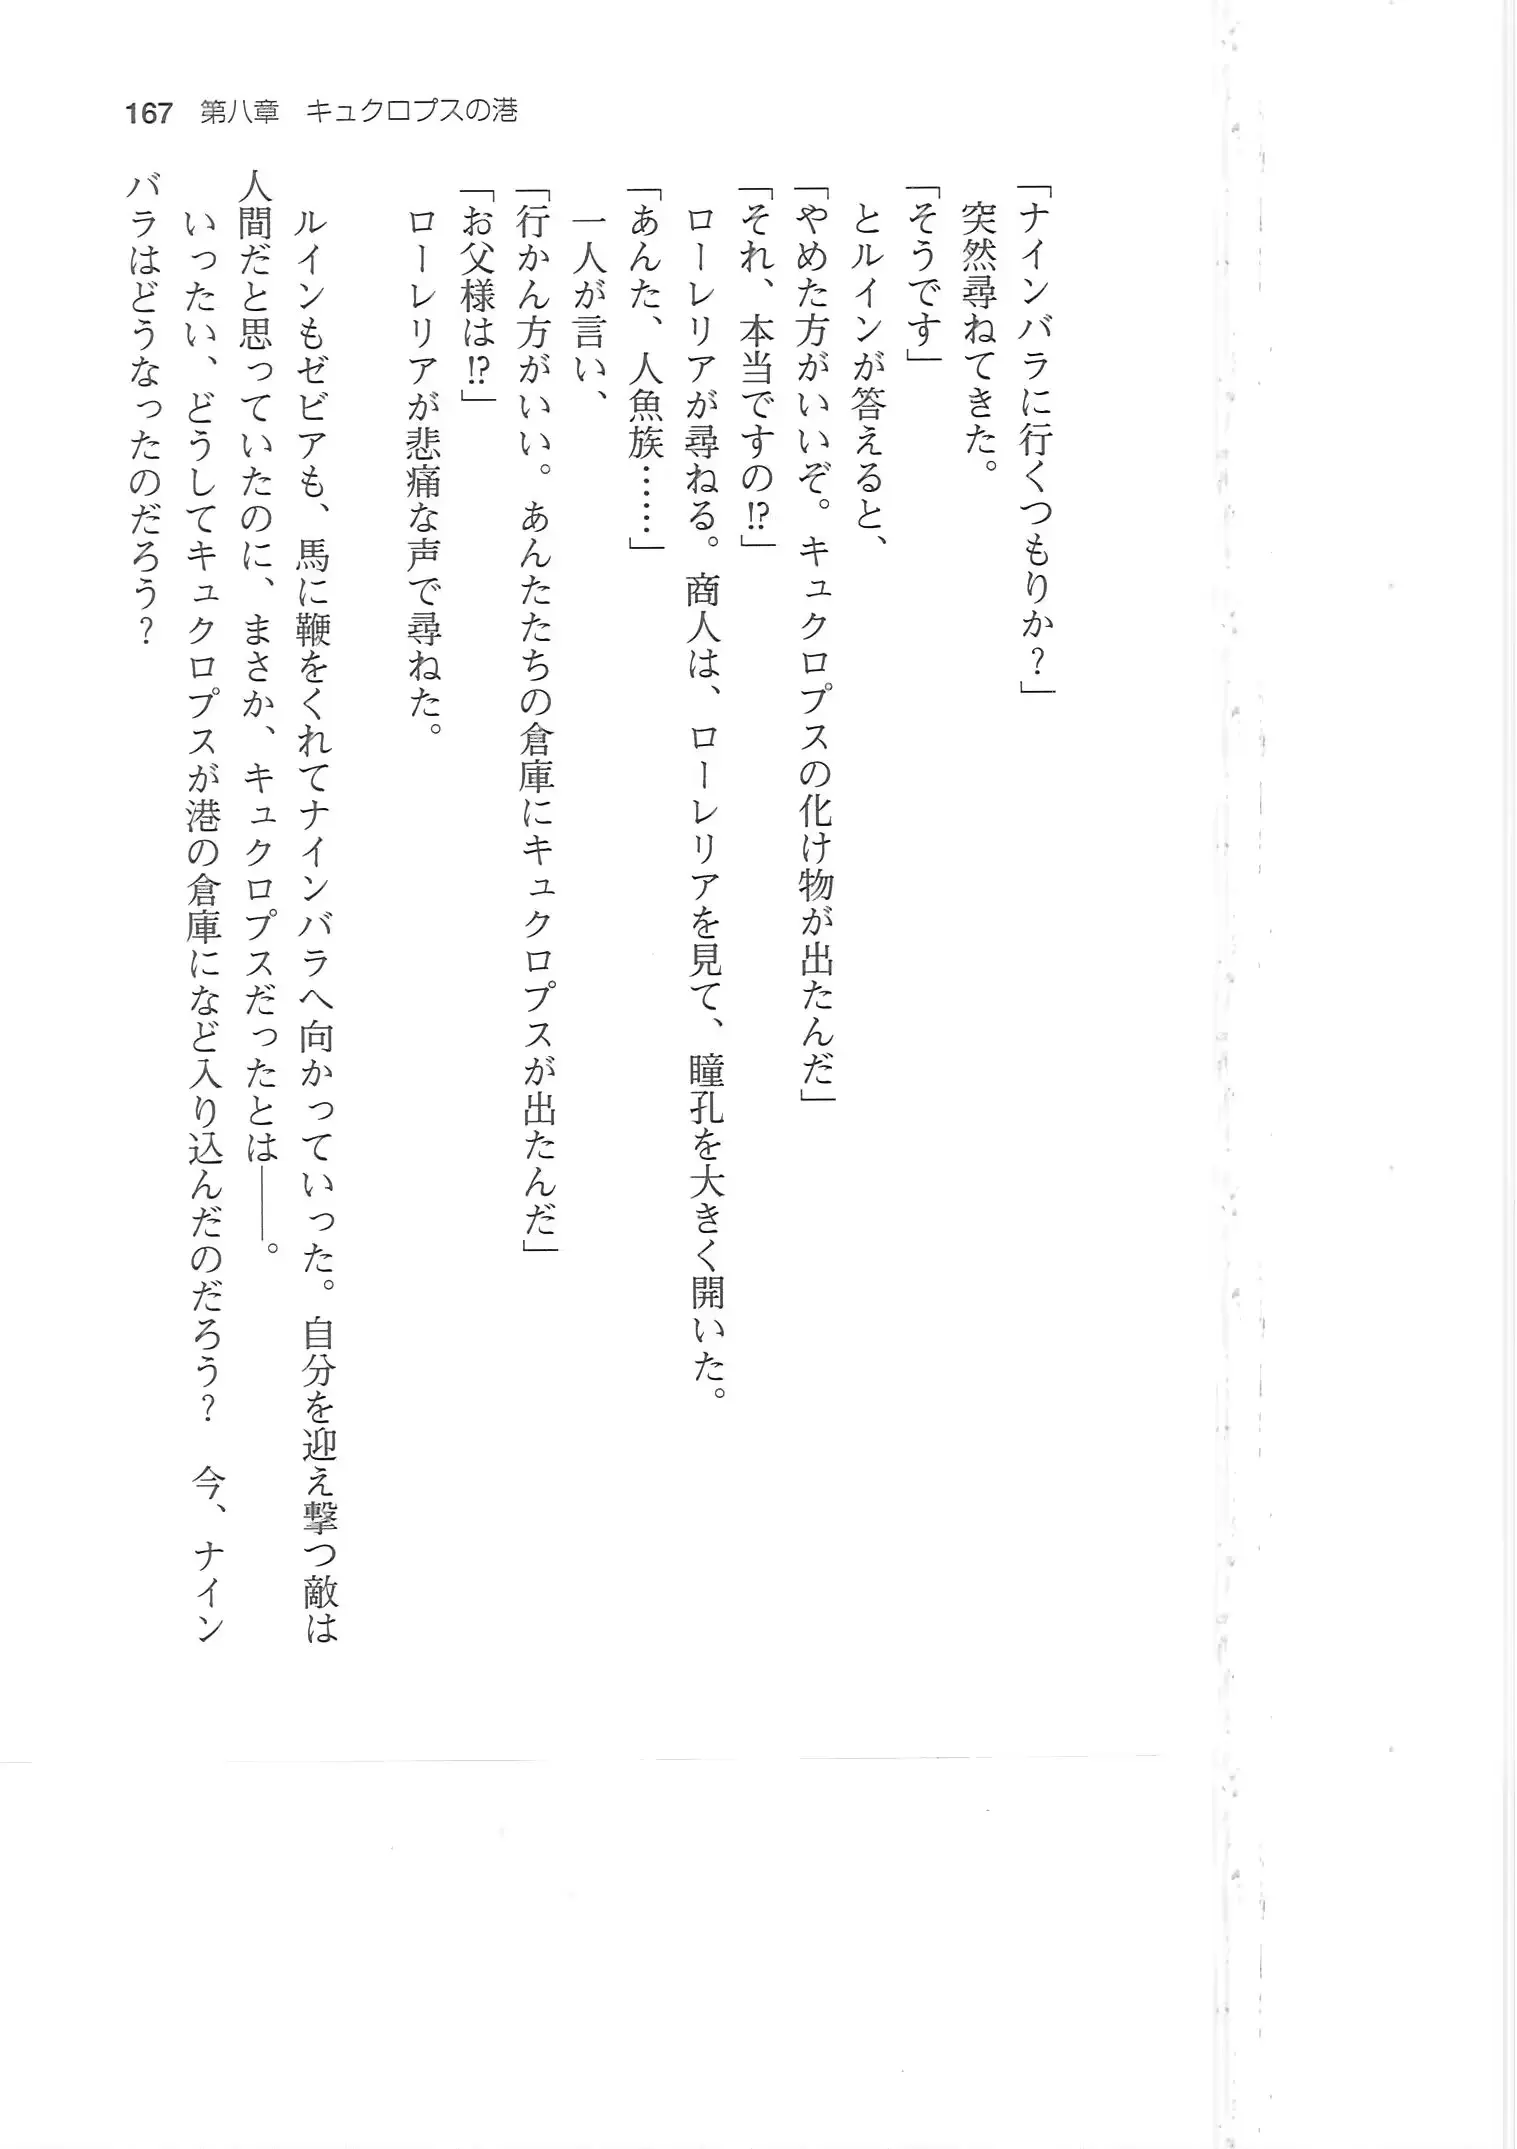 167 第八章 キュクロプスの港
「ナインバラに行くつもりか？」
　突然尋ねてきた。
「そうです」
　とルインが答えると、
「やめた方がいいぞ。キュクロプスの化け物が出たんだ」
「それ、本当ですの⁉」
　ローレリアが尋ねる。商人は、ローレリアを見て、瞳孔を大きく開いた。
「あんた、人魚族……」
　一人が言い、
「行かん方がいい。あんたたちの倉庫にキュクロプスが出たんだ」
「お父様は⁉」
　ローレリアが悲痛な声で尋ねた。
　ルインもゼビアも、馬に鞭をくれてナインバラへ向かっていった。自分を迎え撃つ敵は
人間だと思っていたのに、まさか、キュクロプスだったとは――。
　いったい、どうしてキュクロプスが港の倉庫になど入り込んだのだろう？　今、ナイン
バラはどうなったのだろう？